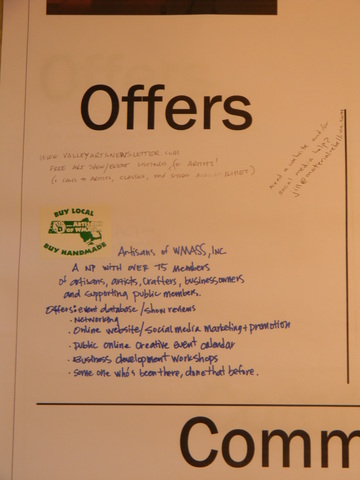 Offers
WWW.VALLEYARTSNEWSLETTER.COM
FREE ART SHOW/EVENT LISTINGS for ARTISTS!
need a website and/or
social media help?
BUY LOCAL
ARTISANS
OF WMASS
BUY HANDMADE
Artisans of WMASS, INC.
A NP WITH OVER 75 members
of artisans, artists, crafters, business owners
and supporting public members.
Offers: event database/show reviews
- Networking
- Online website/social media marketing & promotion
- Public online creative event calendar
- Business development workshops
- Some one who's been there, done that before.
Comm